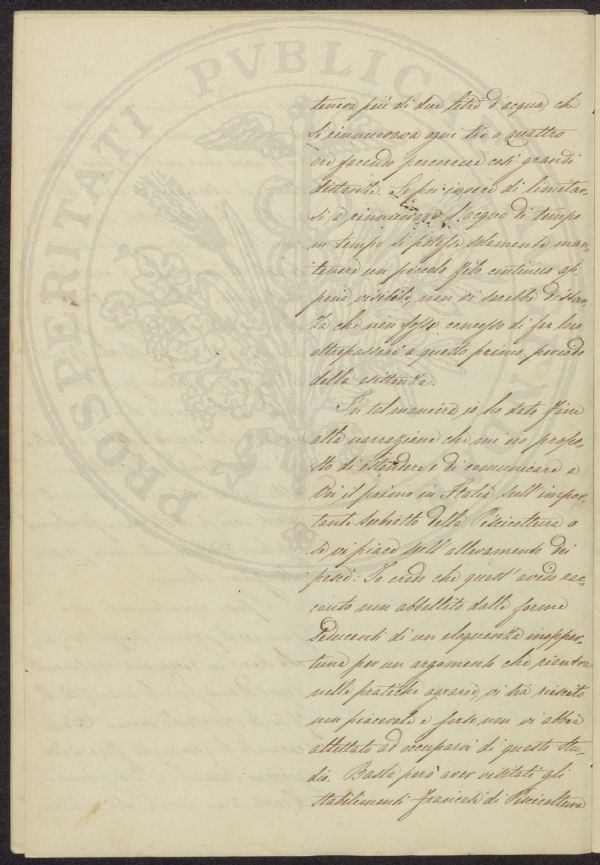 PROSPERITATI PVBLICAE
teneva più di due litri d'acqua, che
si rinnuovava ogni tre o quattro
ore facendo percorrere così grandi
distanze. Se poi invece di limitar-
si a rinnuovare l'acqua di tempo
in tempo si potesse solamente man-
tenere un piccolo filo continuo ap-
pena visibile non vi sarebbe distan-
za che non fosse concesso di far loro
oltrepassare a questo primo periodo
della esistenza.
In tal maniera io ho dato fine
alla narrazione che mi ero propo-
sto di estendere e di comunicare a
Voi il primo in Italia sull'impor-
tante subietto della Piscicultura o
se vi piace sull'allevamento dei
pesci: Io credo che quest'arido rac-
conto non abbellito dalle forme
seducenti di un eloquenza inoppor-
tuna per un argomento che rientra
nelle pratiche agrarie, vi sia riescito
non piacevole e forse non vi abbia
allettato ad occuparvi di questo stu-
dio. Basta però aver visitati gli
stabilimenti francesi di Piscicultura